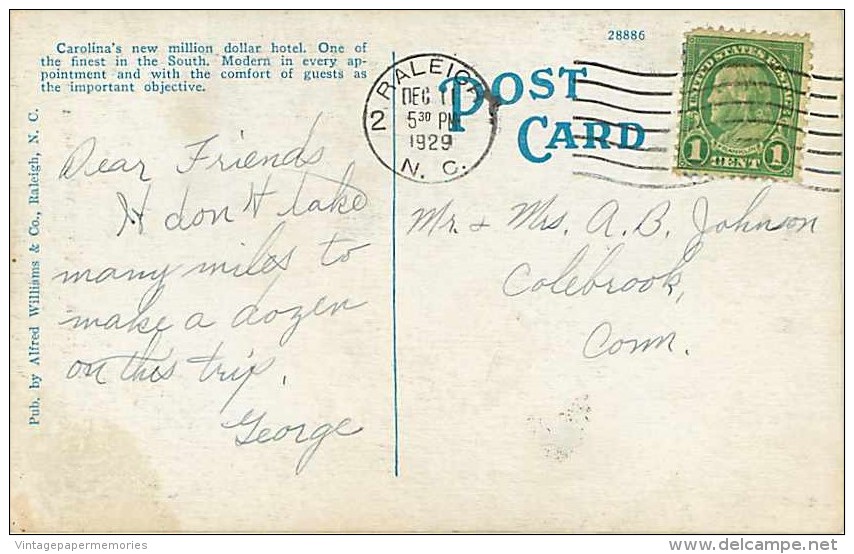 Carolina's new million dollar hotel. One of
the finest in the South. Modern in every ap-
pointment and with the comfort of guests as
the important objective.
28886
POST
CARD
RALEIGH
DEC 11
5 30 PM
1929
N. C.
2
UNITED STATES POSTAGE
FRANKLIN
1 CENT 1
Pub. by Alfred Williams & Co., Raleigh, N. C.
Dear Friends
It don't take
many miles to
make a dozen
on this trip.
George
Mr. & Mrs. A. B. Johnson
Colebrook,
Conn.
Vintagepapermemories
delcampe.net